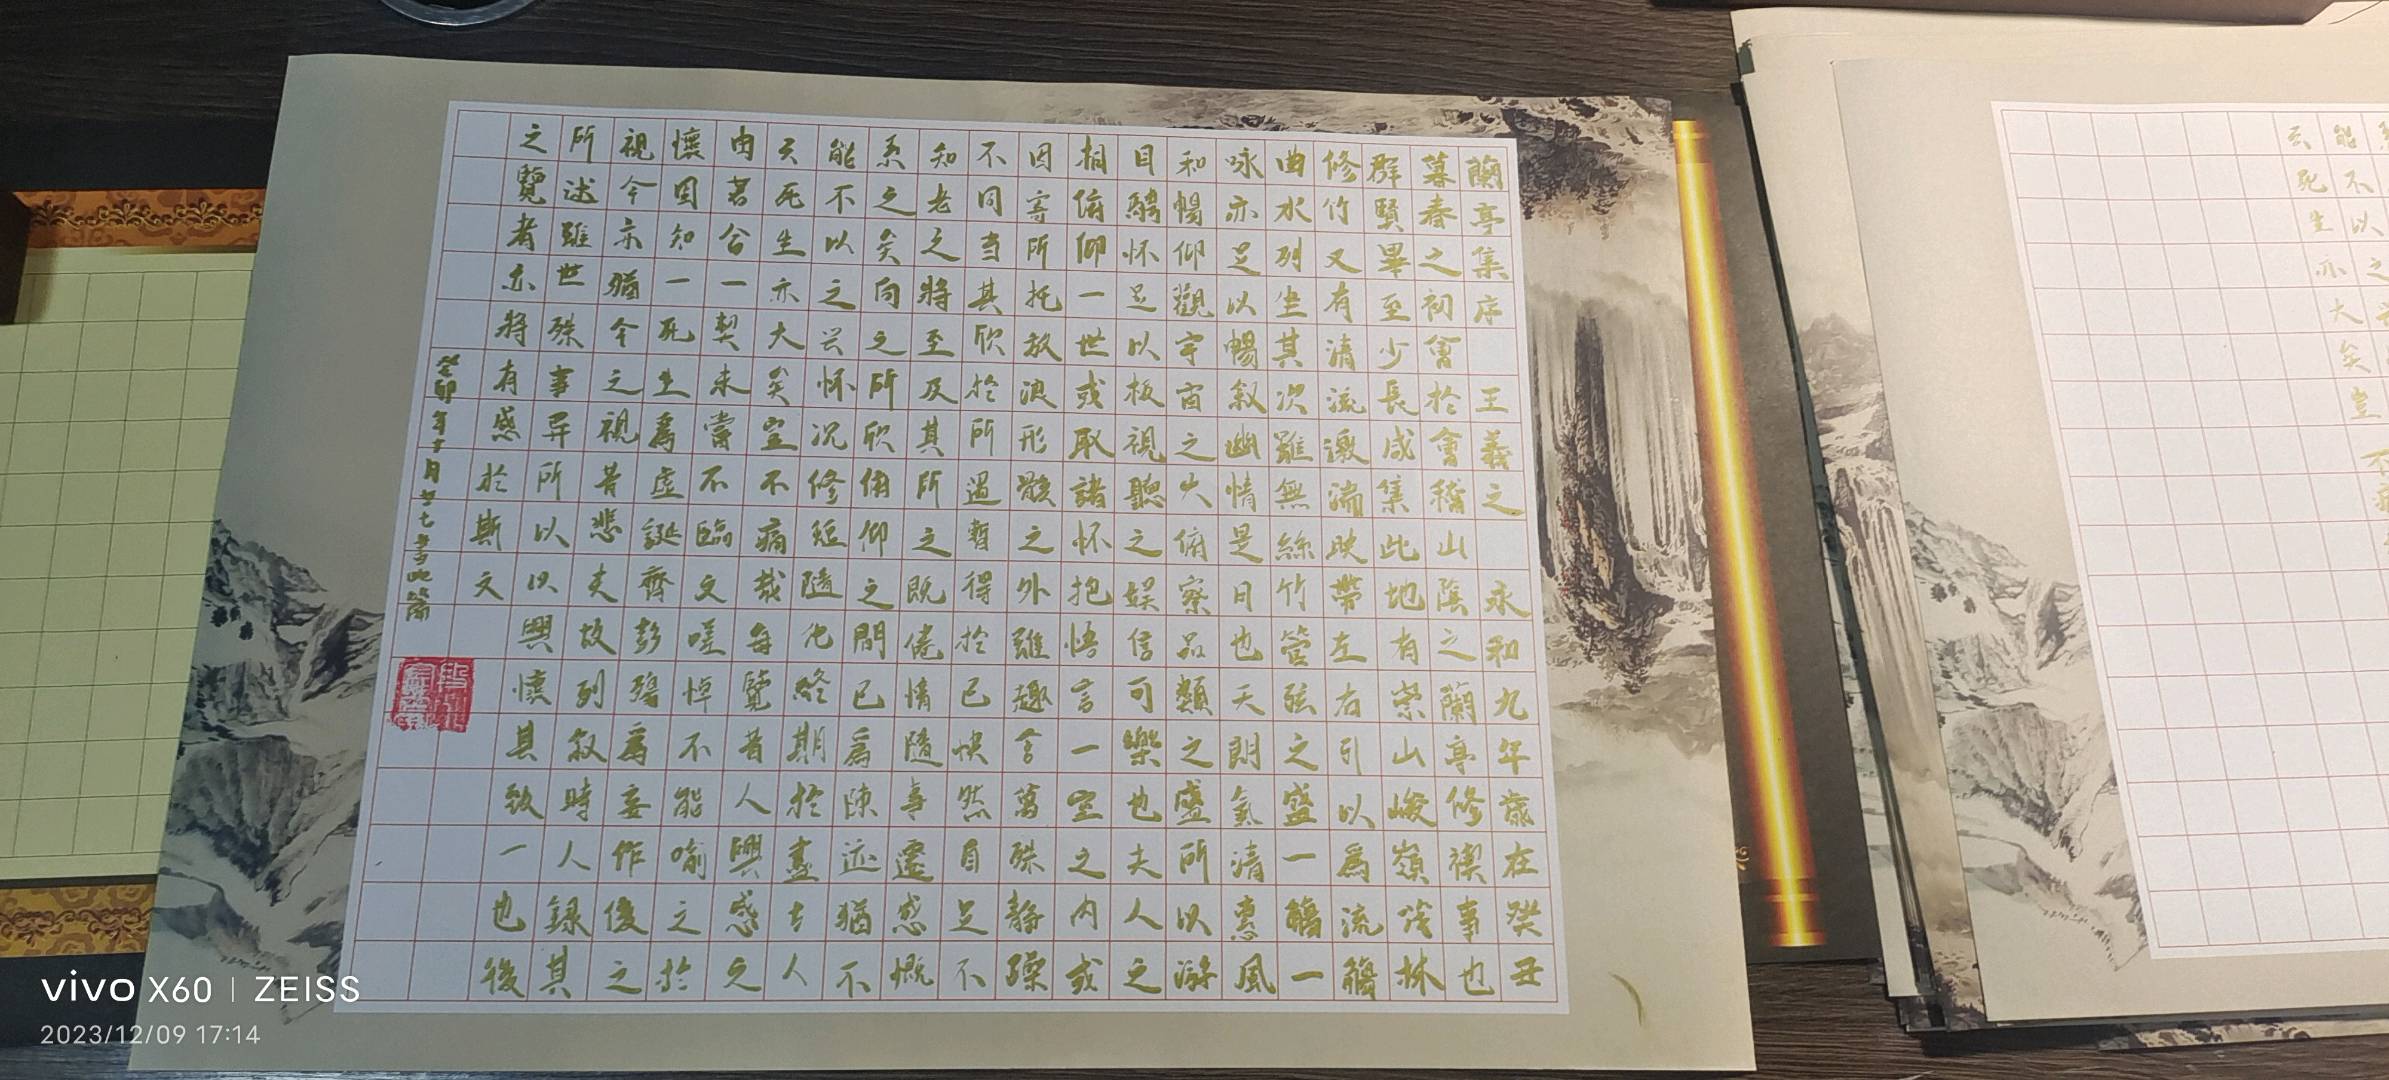 蘭亭集序 王羲之 永和九年歲在癸丑
暮春之初會於會稽山陰之蘭亭修禊事也
群賢畢至少長咸集此地有崇山峻嶺茂林
修竹又有清流激湍映帶左右引以爲流觴
曲水列坐其次雖無絲竹管弦之盛一觴一
咏亦足以暢叙幽情是日也天朗氣清惠風
和暢仰觀宇宙之大俯察品類之盛所以游
目騁怀足以极視聽之娱信可樂也夫人之
相俯仰一世或取諸怀抱悟言一室之内或
因寄所托放浪形骸之外雖趣舍萬殊静躁
不同当其欣於所遇暫得於己怏然自足不
知老之將至及其所之既倦情隨事遷感慨
系之矣向之所欣俯仰之間已爲陳迹猶不
能不以之兴怀况修短隨化終期於盡古人
云死生亦大矣豈不痛哉每覽昔人興感之
由若合一契未嘗不臨文嗟悼不能喻之於
懷固知一死生爲虛誕齊彭殤爲妄作後之
視今亦猶今之視昔悲夫故列叙時人録其
所述雖世殊事异所以以興懷其致一也後
之覽者亦將有感於斯文
癸卯年十月廿七書
能不以之
云死生亦大矣豈不痛
vivo X60 | ZEISS
2023/12/09 17:14